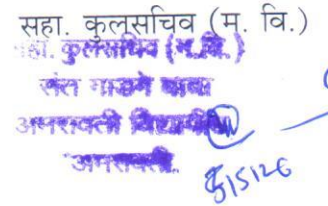 सहा. कुलसचिव (म. वि.)
सहा. कुलसचिव (म. वि.)
संत गाडगे बाबा
अमरावती विद्यापीठ
अमरावती.
5/5/26